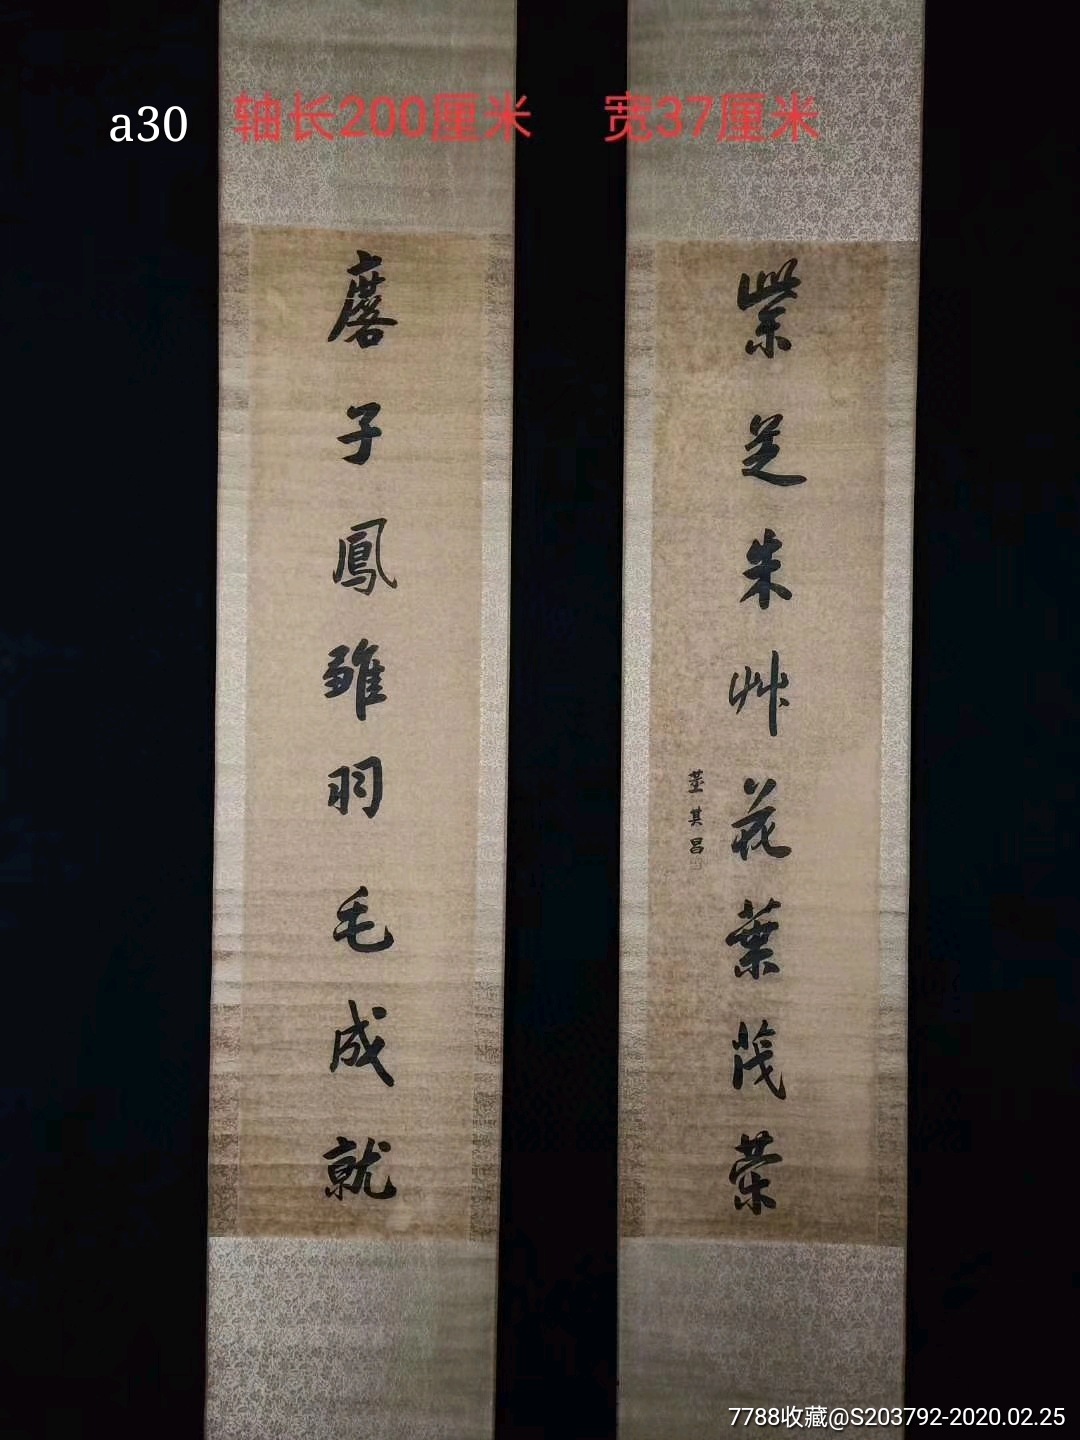 a30 轴长200厘米 宽37厘米
紫芝朱艸花葉茂榮
董其昌
麐子鳳雛羽毛成就
7788收藏@S203792-2020.02.25